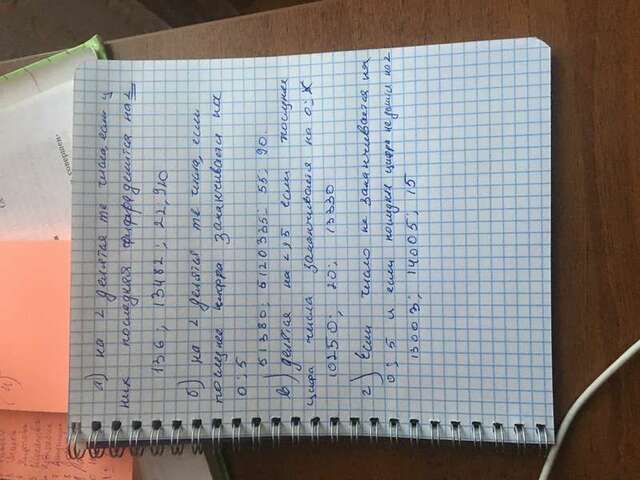 совершен-
а) на 2 делятся те числа, если у
них последняя цифра делится на 2
136; 13482; 22,920
б) на 2 делятся те числа, если
последнее цифра заканчивается на
0; 5
51380; 5120335; 55; 90
в) делятся на 2 и 5 если последнее
цифра числа заканчивается на 0;
10250; 20; 13330
г) Если число не заканчивается на
0; 5 и если последнее цифра не делится на 2
13003; 14005; 15